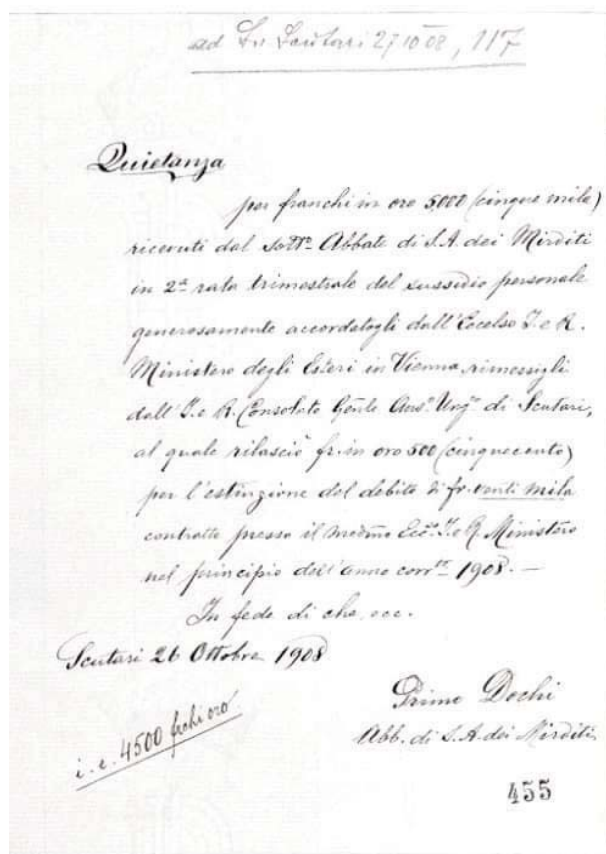 ad Zu Scutari 27/10 08, 117
Quietanza
per franchi in oro 5,000 (cinque mila)
ricevuti dal sottº Abbate di S.A. dei Mirditi
in 2ª rata trimestrale del sussidio personale
generosamente accordatogli dall'Eccelso I. e R.
Ministero degli Esteri in Vienna, rimessigli
dall'I. e R. Consolato Gēnle Ausº Ungº di Scutari,
al quale rilasciò fr. in oro 500 (cinquecento)
per l'estinzione del debito di fr. venti mila
contratto presso il medmo Eccº I. e R. Ministero
nel principio dell'anno corrte 1908. —
In fede di che, ecc.
Scutari 26 Ottobre 1908
Primo Dochi
Abb. di S. A. dei Mirditi
i. e. 4500 frchi oro
455